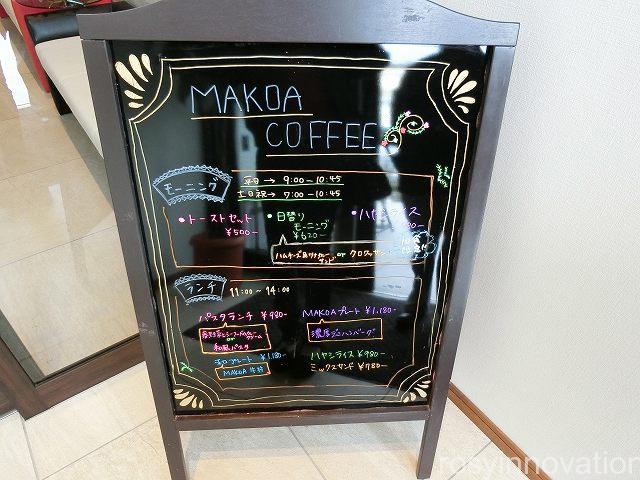 MAKOA
COFFEE
モーニング
平日 → 9:00-10:45
土日祝 → 7:00-10:45
・トーストセット
¥500-
・日替り
モーニング
¥620-
・ハヤシライス
ハムチーズ or クロワッサン
ランチ
11:00~14:00
パスタランチ ¥980-
or
和風パスタ
プレート ¥1,180-
MAKOA
MAKOAプレート ¥1,180-
ハンバーグ
ハヤシライス ¥980-
ミックスサンド ¥780-
rosyinnovation